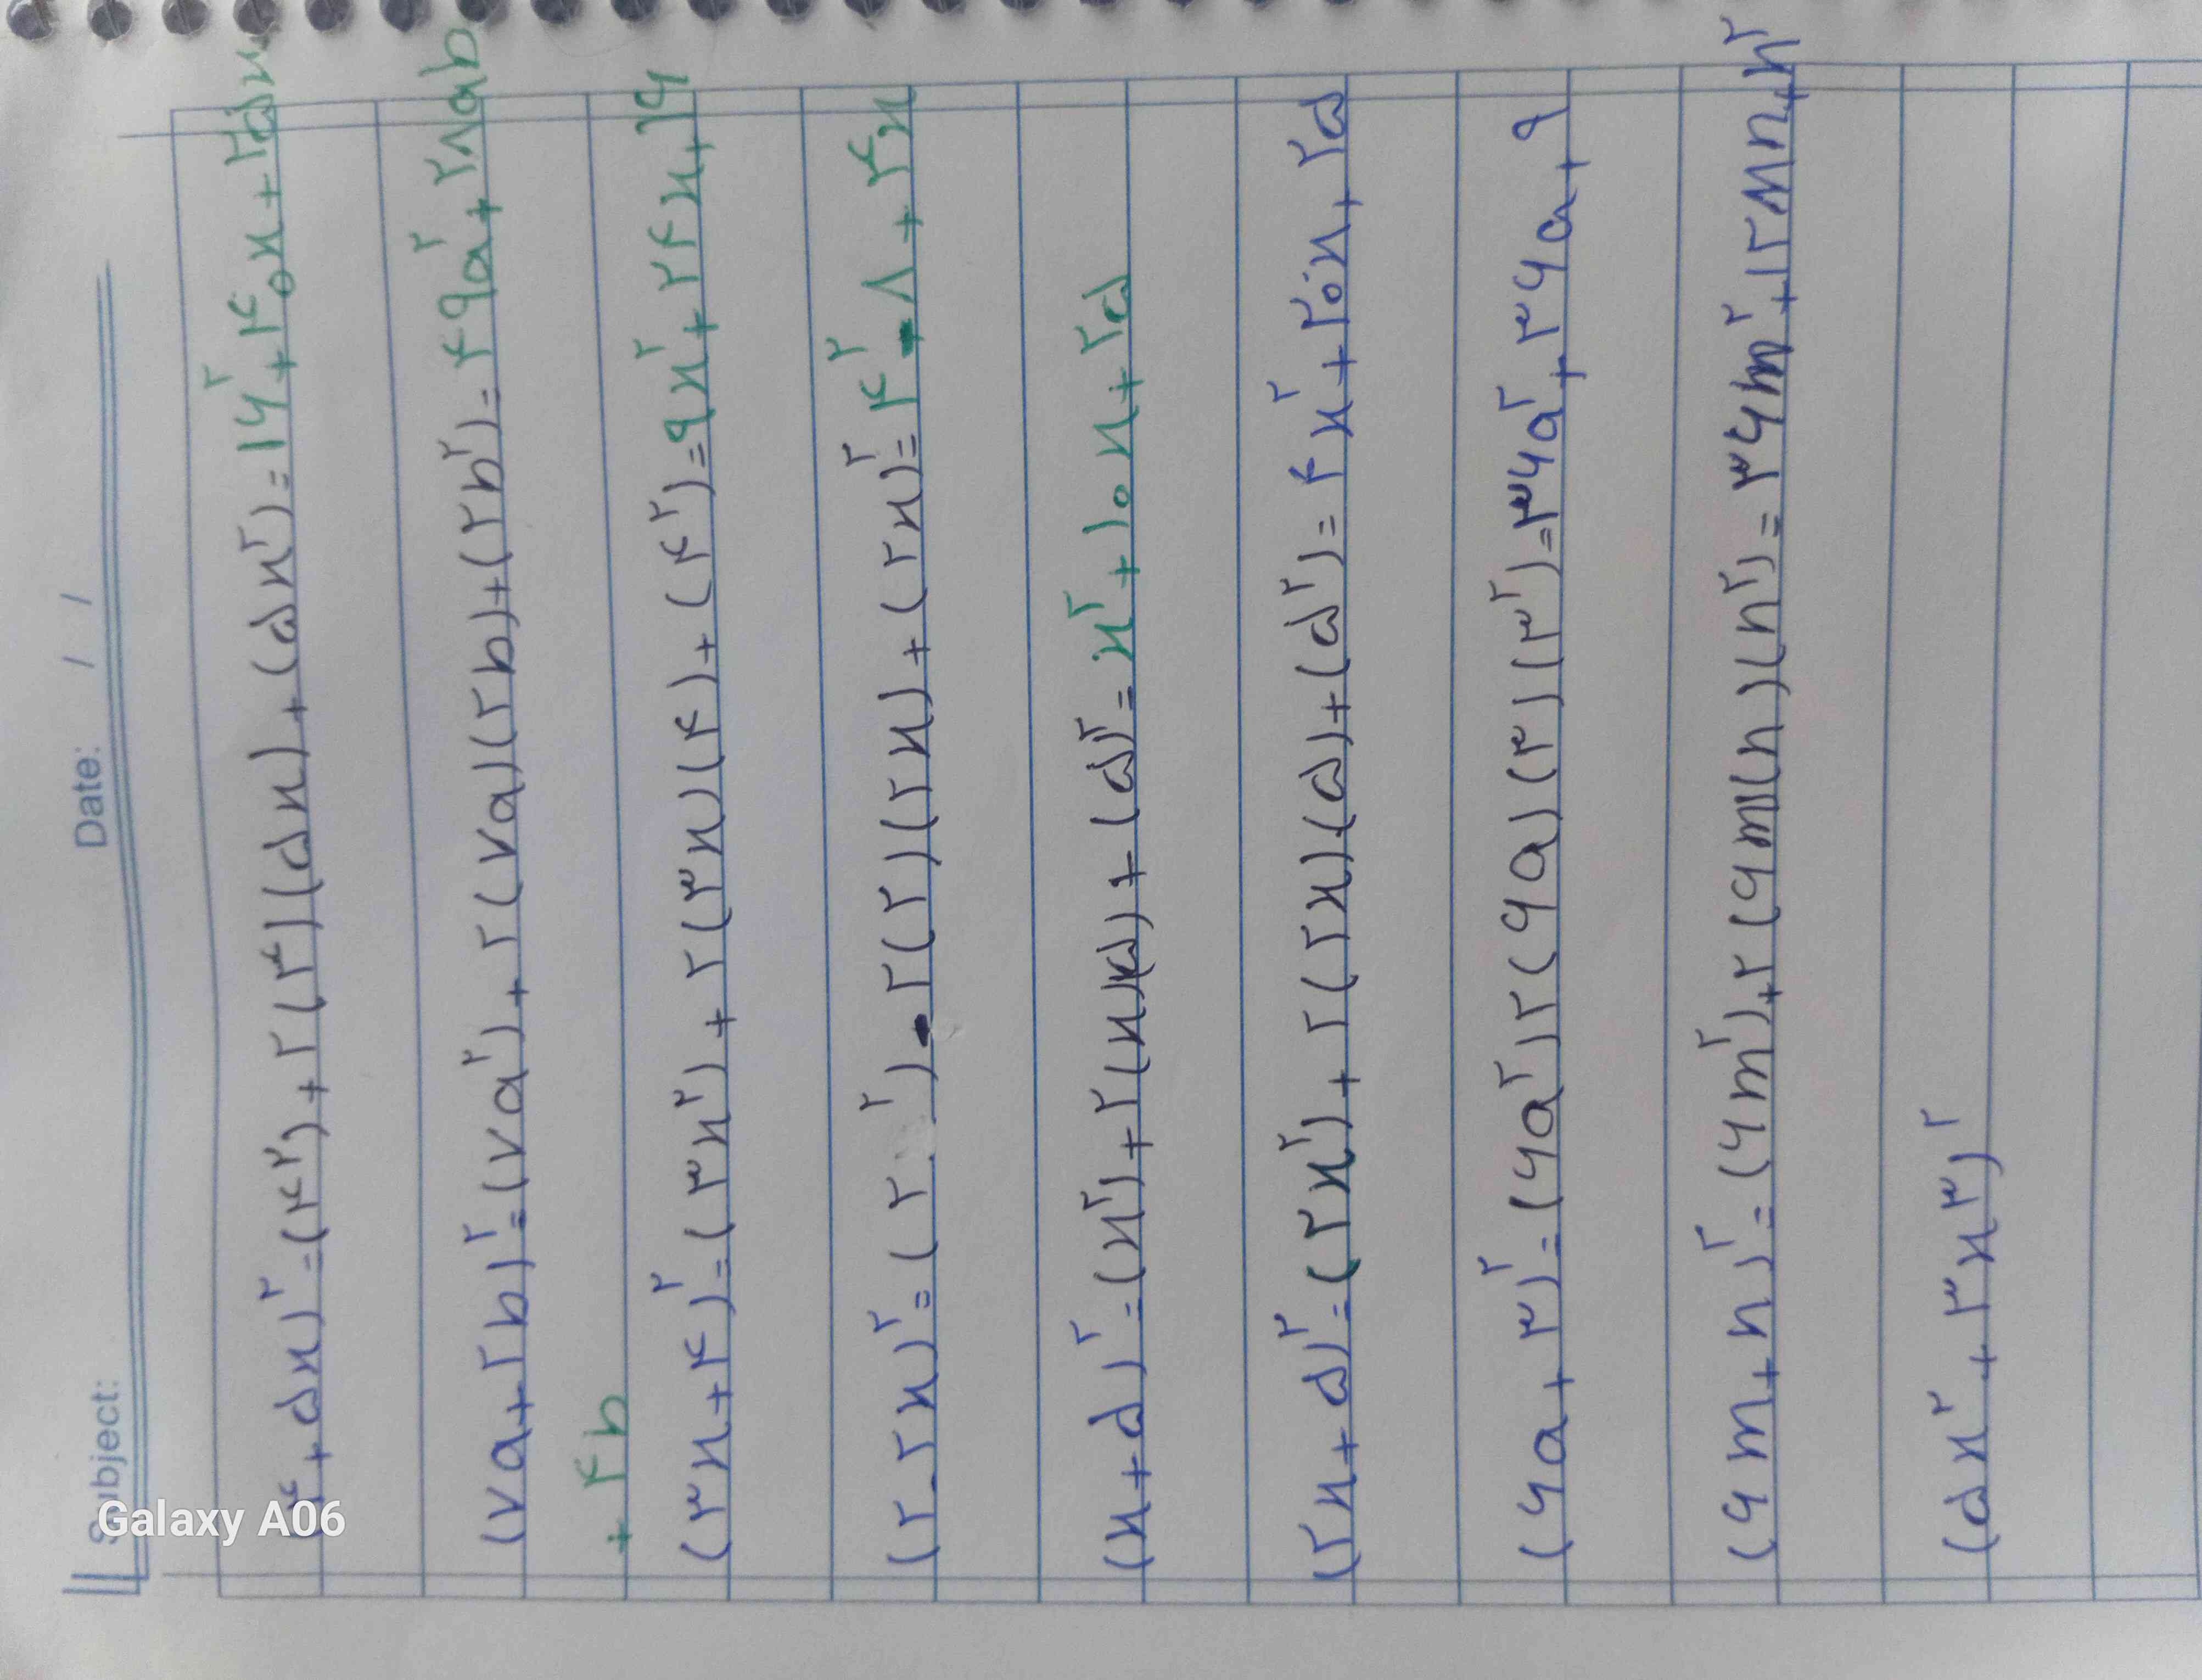 Subject:
Date: / /
(۴+۵x)^۲=(۴^۲)+۲(۴)(۵x)+(۵x^۲)=۱۶^۲+۴۰x+۲۵x
(۷a+۲b)^۲=(۷a^۲)+۲(۷a)(۲b)+(۲b^۲)=۴۹a^۲+۲۸ab
+۴b
(۳x+۴)^۲=(۳x^۲)+۲(۳x)(۴)+(۴^۲)=۹x^۲+۲۴x+۱۶
(۲-۲x)^۲=(۲^۲)-۲(۲)(۲x)+(۲x)^۲=۴^۲-۸+۴x
(x+۵)^۲=(x^۲)+۲(x)(۵)+(۵)^۲=x^۲+۱۰x+۲۵
(۲x+۵)^۲=(۲x^۲)+۲(۲x)(۵)+(۵^۲)=۴x^۲+۲۰x+۲۵
(۶a+۳)^۲=(۶a^۲)۲(۶a)(۳)(۳^۲)=۳۶a^۲+۳۶a+۹
(۶m+n)^۲=(۶m^۲)+۲(۶m)(n)(n^۲)=۳۶m^۲+۱۲mn+n^۲
(۵x^۲+۳x^۳)^۲
Galaxy A06